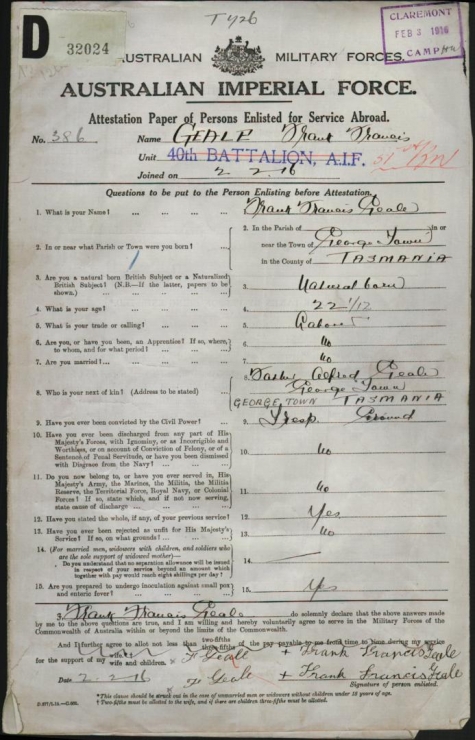 Tyab
D
32024
CLAREMONT
FEB 3 1916
CAMP
AUSTRALIAN MILITARY FORCES.
AUSTRALIAN IMPERIAL FORCE.
Attestation Paper of Persons Enlisted for Service Abroad.
No. 386 Name GEALE Frank Francis
Unit 40th BATTALION, A.I.F. 51st Bn
Joined on 2.2.16
Questions to be put to the Person Enlisting before Attestation.
1. What is your Name? ... Frank Francis Geale
2. In or near what Parish or Town were you born? ... 2. In the Parish of in or
near the Town of George Town
in the County of TASMANIA
3. Are you a natural born British Subject or a Naturalized
British Subject? (N.B.—If the latter, papers to be
shown.) ... 3. Natural born
4. What is your age? ... 4. 22 1/12
5. What is your trade or calling? ... 5. Labourer
6. Are you, or have you been, an Apprentice? If so, where,
to whom, and for what period? ... 6. No
7. Are you married? ... 7. No
8. Who is your next of kin? (Address to be stated) ... 8. Father Alfred Geale
George Town
GEORGE TOWN TASMANIA
9. Have you ever been convicted by the Civil Power? ... 9. Tresp. Ground
10. Have you ever been discharged from any part of His
Majesty's Forces, with Ignominy, or as Incorrigible and
Worthless, or on account of Conviction of Felony, or of a
Sentence of Penal Servitude, or have you been dismissed
with Disgrace from the Navy? ... 10. No
11. Do you now belong to, or have you ever served in, His
Majesty's Army, the Marines, the Militia, the Militia
Reserve, the Territorial Force, Royal Navy, or Colonial
Forces? If so, state which, and if not now serving,
state cause of discharge ... 11. No
12. Have you stated the whole, if any, of your previous service? 12. Yes
13. Have you ever been rejected as unfit for His Majesty's
Service? If so, on what grounds? ... 13. No
14. (For married men, widowers with children, and soldiers who
are the sole support of widowed mother)—
Do you understand that no separation allowance will be issued
in respect of your service beyond an amount which
together with pay would reach eight shillings per day? 14. —
15. Are you prepared to undergo inoculation against small pox
and enteric fever? ... 15. Yes
I, Frank Francis Geale do solemnly declare that the above answers made
by me to the above questions are true, and I am willing and hereby voluntarily agree to serve in the Military Forces of the
Commonwealth of Australia within or beyond the limits of the Commonwealth.
And I further agree to allot not less than two-fifths three-fifths of the pay payable to me from time to time during my service
for the support of my wife wife and children. F Geale + Frank Francis Geale
Date 2.2.16 F Geale + Frank Francis Geale
Signature of person enlisted.
*This clause should be struck out in the case of unmarried men or widowers without children under 18 years of age.
† Two-fifths must be allotted to the wife, and if there are children three-fifths must be allotted.